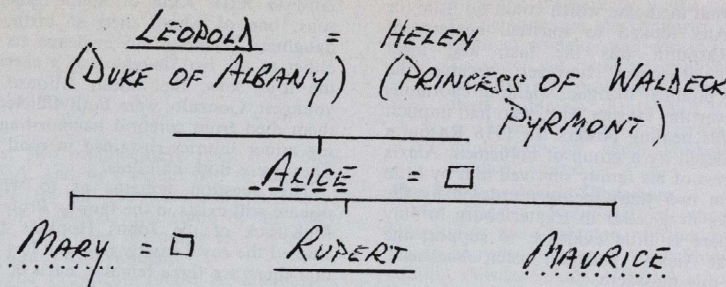 LEOPOLD = HELEN
(DUKE OF ALBANY) (PRINCESS OF WALDECK
PYRMONT)
ALICE = □
MARY = □ RUPERT MAURICE